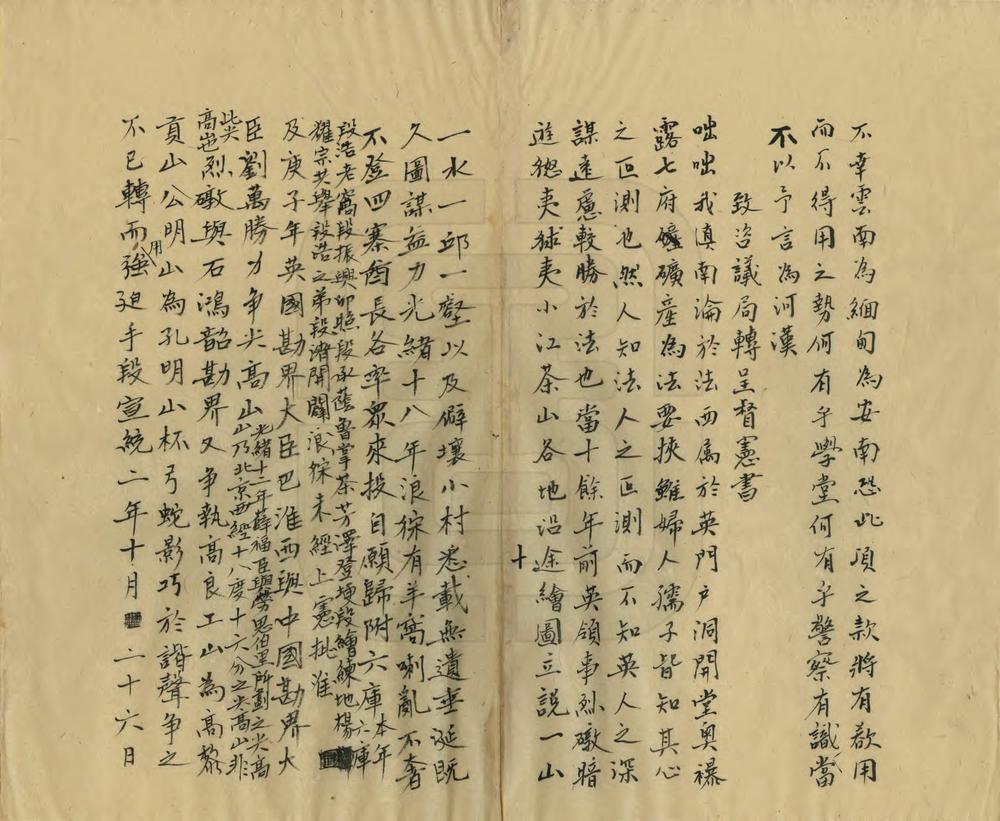 不幸雲南為緬甸為安南恐此項之款將有欲用
而不得用之勢何有乎學堂何有乎警察有識當
不以予言為河漢
致咨議局轉呈督憲書
咄咄我滇南淪於法西属於英門戶洞開堂奧襮
露七府礦產為法要挾雖婦人孺子皆知其心
之叵測也然人知法人之叵測而不知英人之深
謀遠慮較勝於法也當十餘年前英領事烈礅暗
遊狢夷狳夷小江茶山各地沿途繪圖立説一山
十
一水一邱一壑以及僻壤小村悉載無遺垂涎既
久圖謀益力光緒十八年浪㑧有羊窩喇亂不奢
不登四寨酋長各率眾來投自願歸附六庫本年六庫
段浩老窩段振興卯照段承蔭魯掌茶芳澤登埂段繪練地楊
耀宗共舉段浩之弟段濬開闢浪㑧未經上憲批准
及庚子年英國勘界大臣巴淮西與中國勘界大
臣劉萬勝力爭尖高山光緒十二年薛福臣與勞思伯里所劃之尖高
山乃北京西經十八度十六分之尖高山非
此尖
高也烈礅與石鴻韶勘界又爭執高良工山為高黎
貢山公明山為孔明山杯弓蛇影巧於諧聲爭之
不已轉而用強廹手段宣統二年十月二十六日